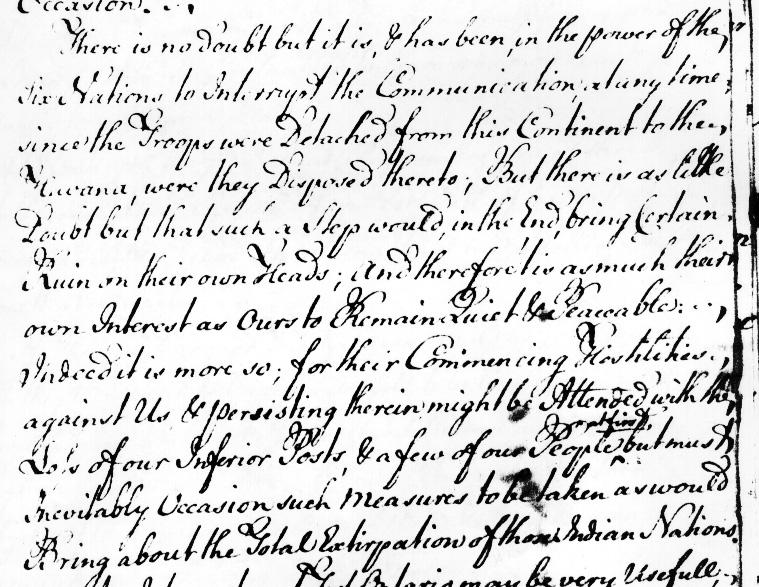 Occasion. . ,
There is no doubt but it is, & has been, in the power of the,
Six Nations to Interrupt the Communication, at any time,
since the Troops were Detached from this Continent to the,
Havana, were they Disposed thereto; But there is as little
Doubt but that such a Step would, in the End, bring Certain
Ruin on their own Heads; and therefore tis as much their
own Interest as Ours to Remain Quiet & Peaceable: . . ,
Indeed it is more so; for their Commencing Hostilities,
against Us & persisting therein might be Attended with the,
Loss of our Inferior Posts, & a few of our People but must
at first,
Inevitably Occasion such Measures to be taken as would
Bring about the Total Extirpation of those Indian Nations.
may be very Usefull,